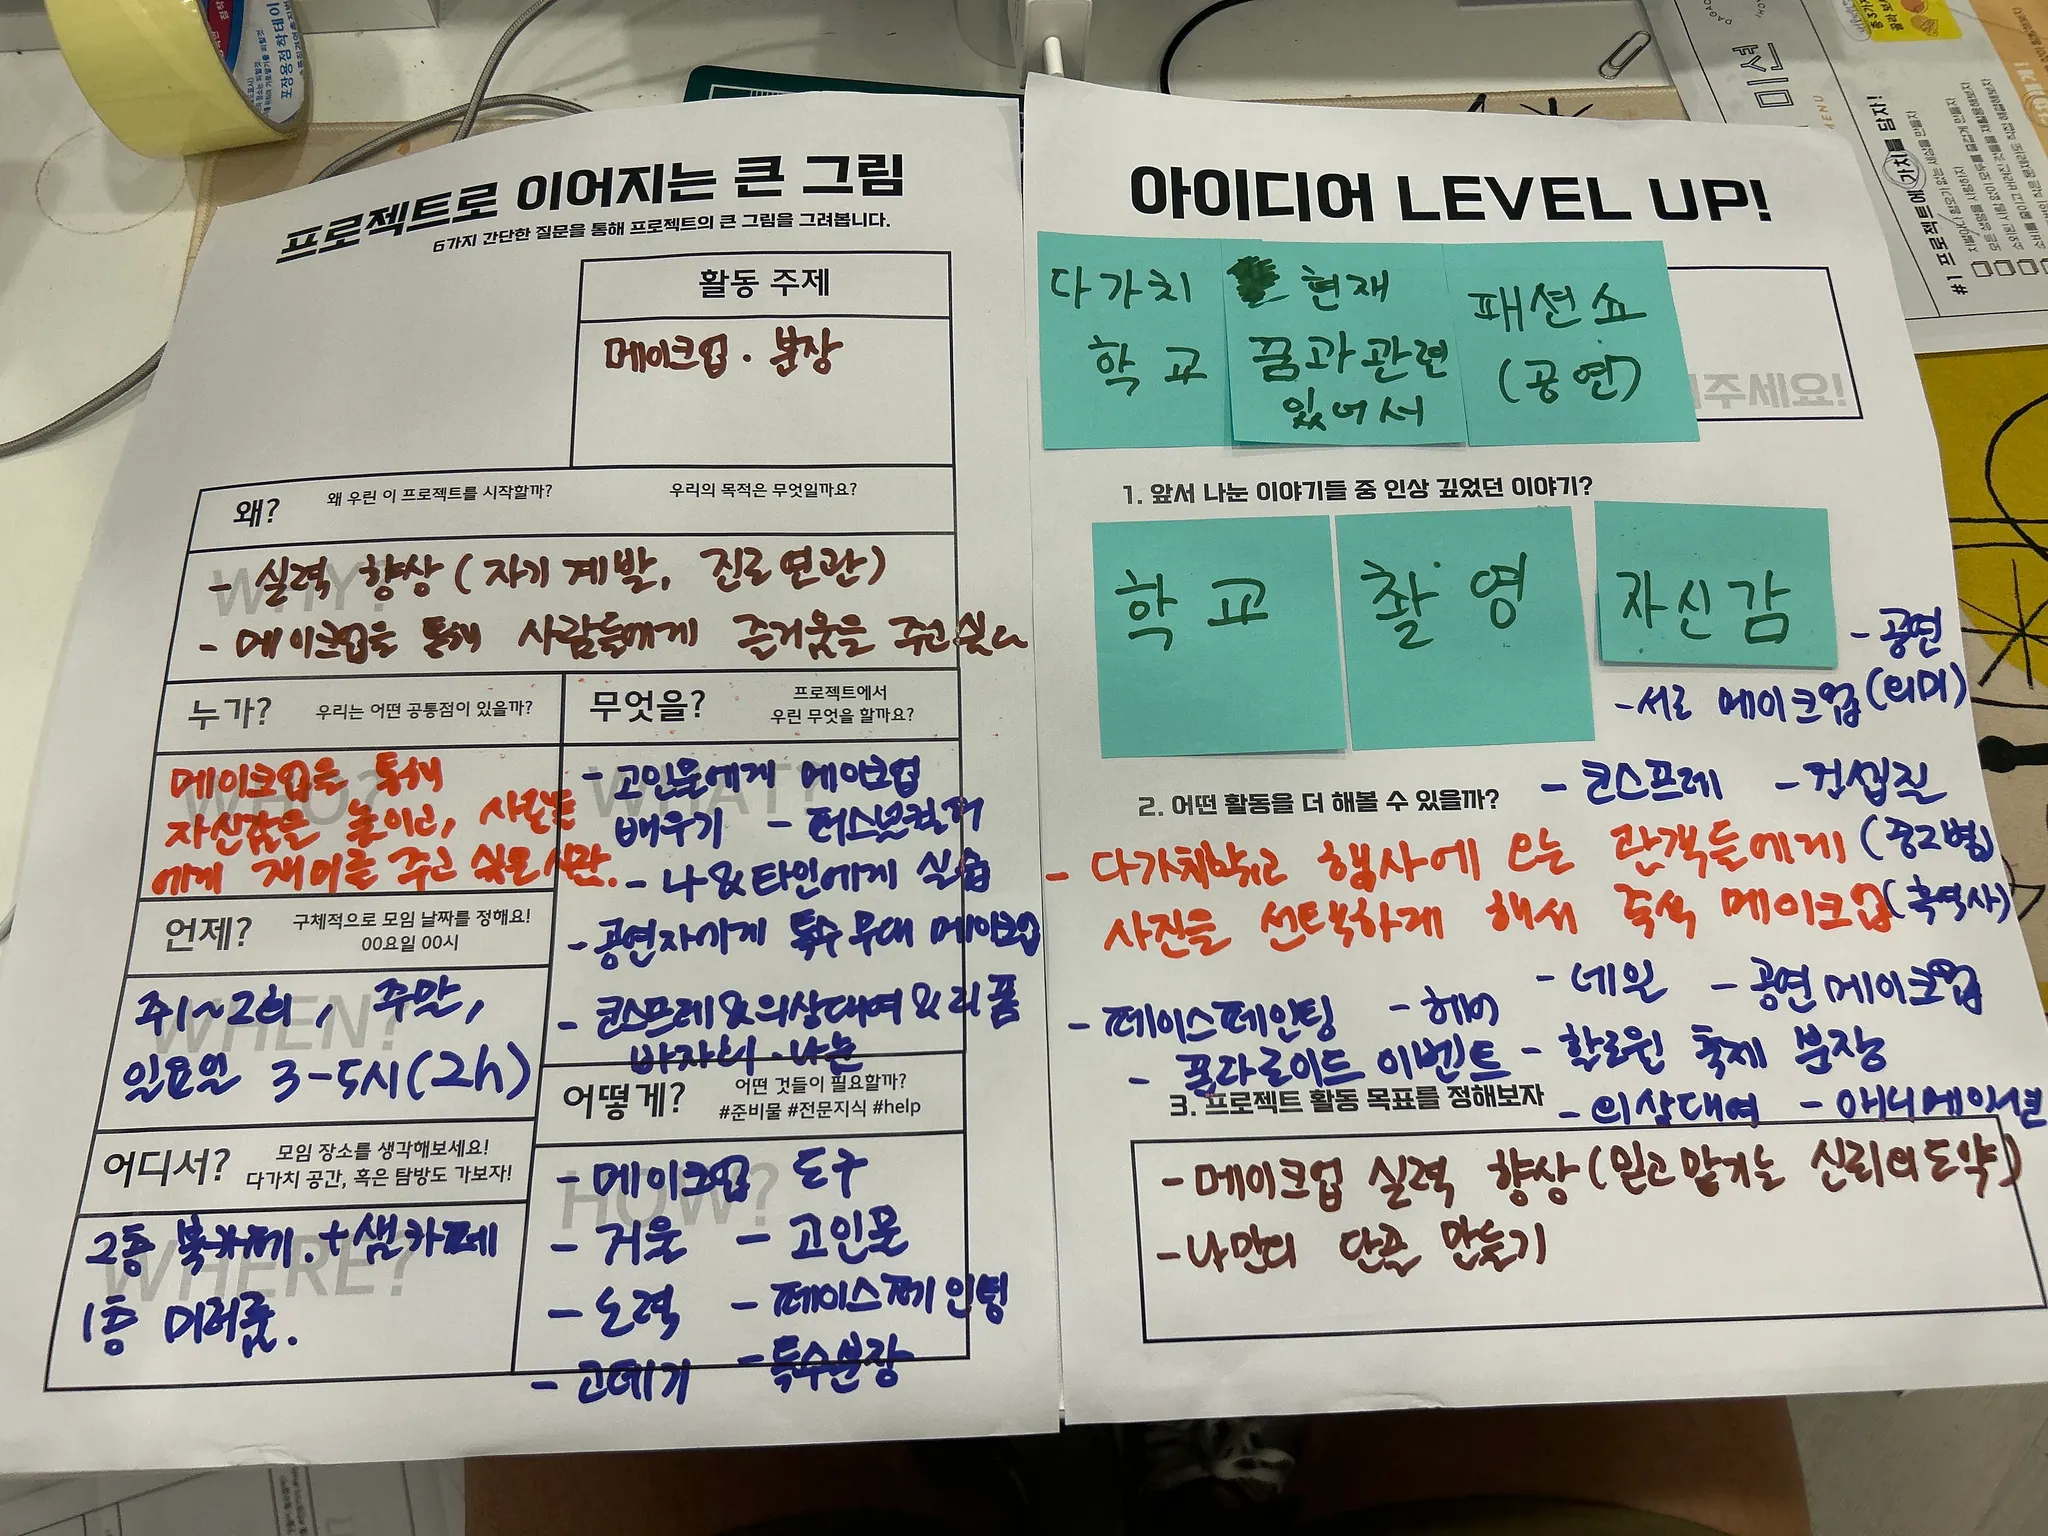 프로젝트로 이어지는 큰 그림
6가지 간단한 질문을 통해 프로젝트의 큰 그림을 그려봅니다.
활동 주제
메이크업 · 분장
왜? 왜 우린 이 프로젝트를 시작할까? 우리의 목적은 무엇일까요?
WHY?
- 실력 향상 (자기계발, 진로연관)
- 메이크업을 통해 사람들에게 즐거움을 주고싶다
누가? 우리는 어떤 공통점이 있을까?
WHO?
메이크업을 통해
자신감을 높이고, 사람들
에게 재미를 주고 싶은 사람.
무엇을? 프로젝트에서
우린 무엇을 할까요?
WHAT?
- 고인물에게 메이크업
배우기 - 퍼스널컬러
- 나&타인에게 실습
- 공연자에게 특수 무대 메이크업
- 코스프레&의상대여&리폼
바자회·나눔
언제? 구체적으로 모임 날짜를 정해요!
00요일 00시
WHEN?
주1~2회, 주말,
일요일 3-5시(2h)
어떻게? 어떤 것들이 필요할까?
#준비물 #전문지식 #help
HOW?
- 메이크업 도구
- 거울 - 고인물
- 노력 - 페이스페인팅
- 고데기 - 특수분장
어디서? 모임 장소를 생각해보세요!
다가치 공간, 혹은 탐방도 가보자!
WHERE?
2층 북카페.+샘카페
1층 미러룸.
아이디어 LEVEL UP!
다가치
학교
현재
꿈과관련
있어서
패션쇼
(공연)
주세요!
1. 앞서 나눈 이야기들 중 인상 깊었던 이야기?
학교
촬영
자신감
- 공연
- 서로 메이크업 (의미)
2. 어떤 활동을 더 해볼 수 있을까? - 코스프레 - 컨셉진
- 다가치학교 행사에 오는 관객들에게 (중고별)
사진을 선택하게 해서 즉석 메이크업 (흑역사)
- 페이스페인팅 - 헤어 - 네일 - 공연메이크업
- 폴라로이드 이벤트 - 할로윈 축제 분장
3. 프로젝트 활동 목표를 정해보자 - 의상대여 - 애니메이션
- 메이크업 실력 향상 (믿고 맡기는 신뢰의도약)
- 나만의 단골 만들기
미션
MENU
#1 프로젝트에 가치를 담자!
포장용점착테이